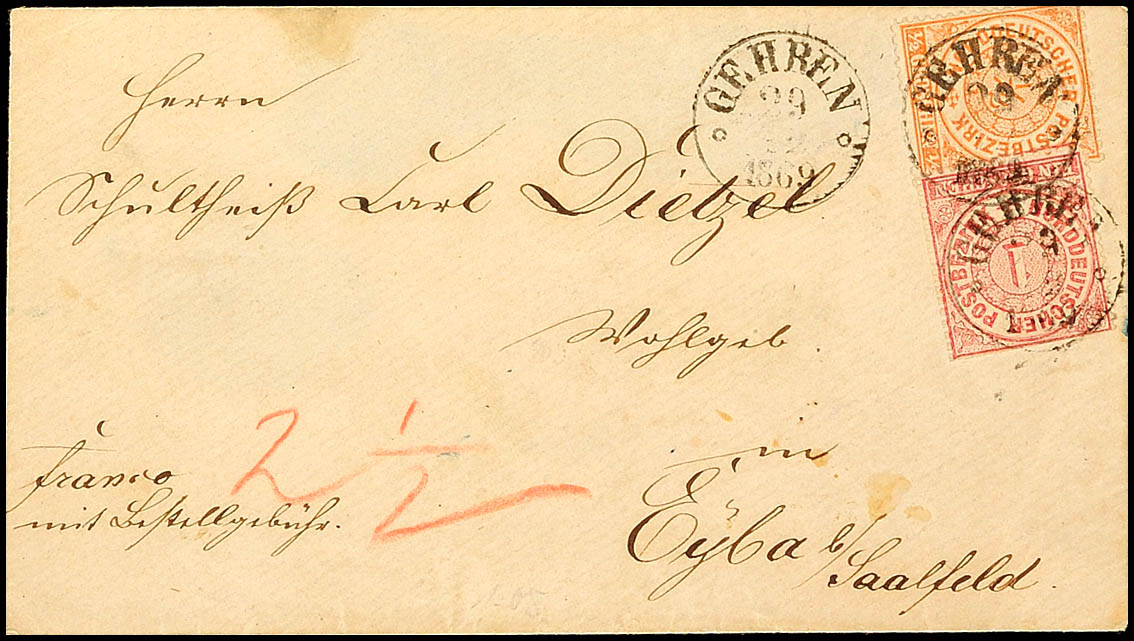 Herrn
Schultheiß Carl Dietzel
Wohlgeb.
in
Eyba b/ Saalfeld.
franco
mit Bestellgebühr.
2 1/2
GEHREN
29
12
1869
NORDDEUTSCHER POSTBEZIRK
GEHREN
29
NORDDEUTSCHER POSTBEZIRK
1
GEHRE